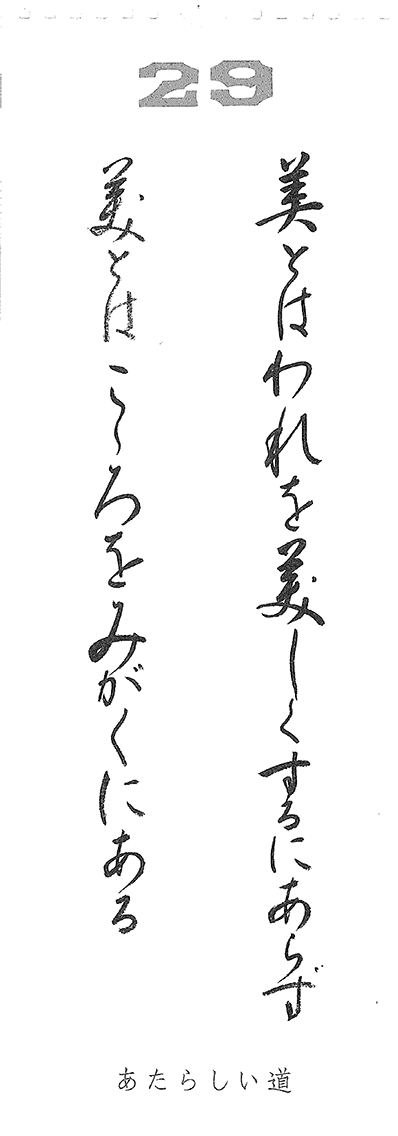 29
美とはわれを美しくするにあらず
美とはこゝろをみがくにある
あたらしい道